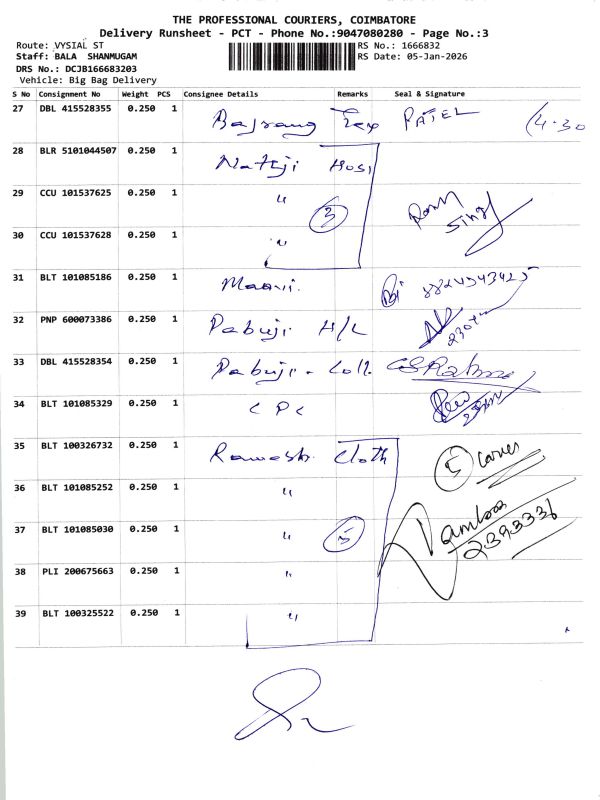 THE PROFESSIONAL COURIERS, COIMBATORE
Delivery Runsheet - PCT - Phone No.:9047080280 - Page No.:3
Route: VYSIAL ST
RS No.: 1666832
Staff: BALA SHANMUGAM
RS Date: 05-Jan-2026
DRS No.: DCJB166683203
Vehicle: Big Bag Delivery
S No Consignment No Weight PCS Consignee Details Remarks Seal & Signature
27 DBL 415528355 0.250 1 Bajrang Tex PATEL 4.30
28 BLR 5101044507 0.250 1 Natji Hosi
29 CCU 101537625 0.250 1 " 3 Ram Singh
30 CCU 101537628 0.250 1 "
31 BLT 101085186 0.250 1 Maani
32 PNP 600073386 0.250 1 Pabuji H/L
33 DBL 415528354 0.250 1 Pabuji - Coll.
34 BLT 101085329 0.250 1 CPC
35 BLT 100326732 0.250 1 Ramesh Cloth 5
36 BLT 101085252 0.250 1 "
37 BLT 101085030 0.250 1 " 5 2393336
38 PLI 200675663 0.250 1 "
39 BLT 100325522 0.250 1 "